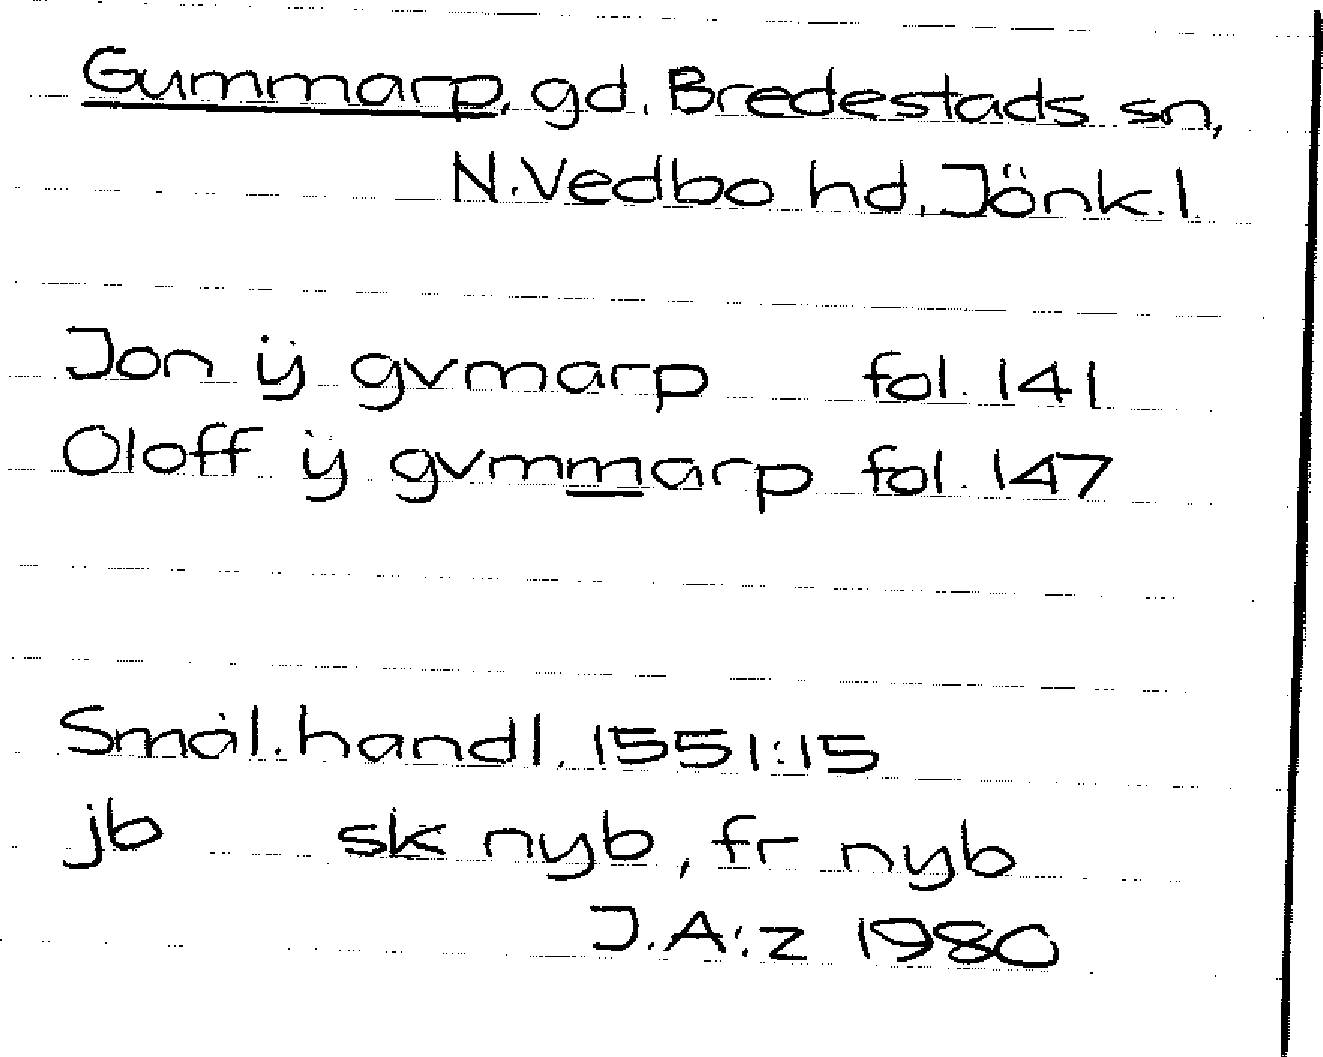 Gummarp, gd. Bredestads sn,
N.Vedbo hd, Jönk.l
Jon ÿ gvmarp fol. 141
Oloff ÿ gvmmarp fol. 147
Smål. handl. 1551:15
jb sk nyb, fr nyb
J.A:z 1980